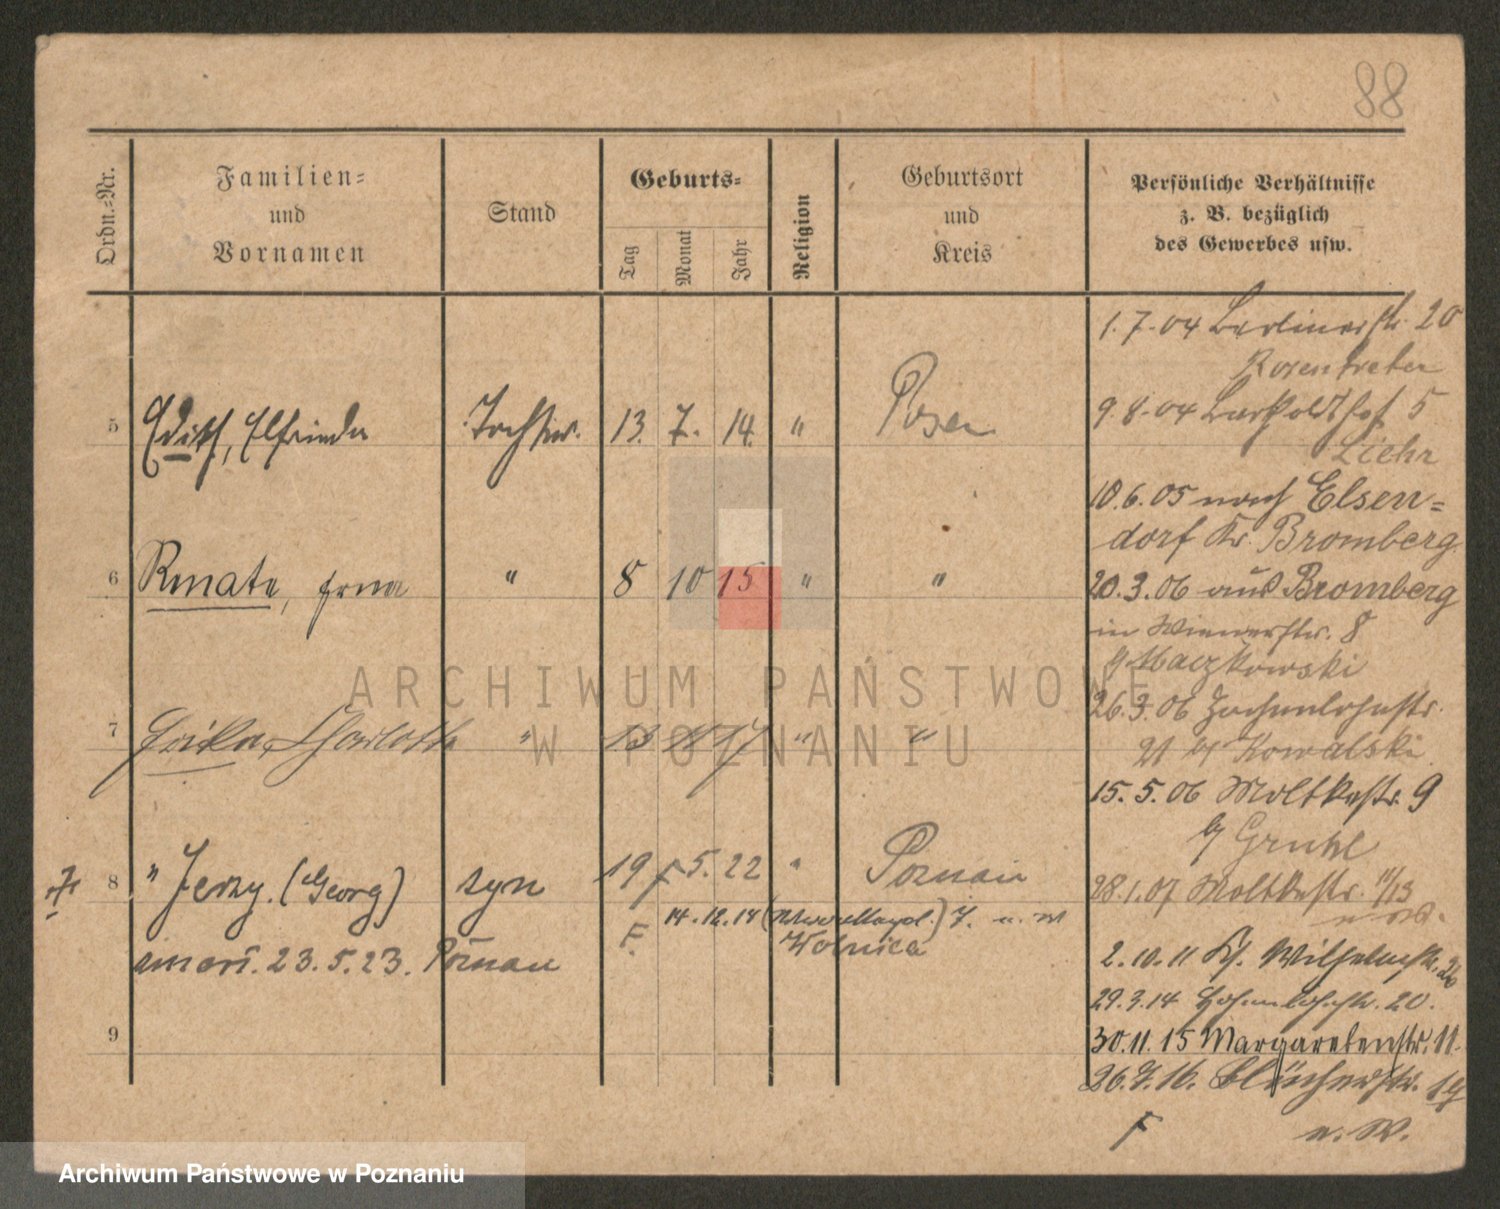 88
Ordn.-Nr.
Familien-
und
Vornamen
Stand
Geburts-
Tag
Monat
Jahr
Religion
Geburtsort
und
Kreis
Persönliche Verhältnisse
z. B. bezüglich
des Gewerbes usw.
5 Edith, Elfrieda Tochter 13. 7. 14. " Posen
6 Renate, Erna " 8 10 15 " "
7 Erika Charlotte " 13 17 " "
8 " Jerzy. (Georg) syn 19 5. 22 " Poznań
14. 12. 18
Wolnica
F.
zmarł. 23.5.23. Poznań
9
1.7.04 Berlinerstr. 20
Rosentreter
9.8.04 5
Liehr
10.6.05 nach Elsen=
dorf Kr. Bromberg
20.3.06 aus Bromberg
in Wienerstr. 8
Maczkowski
26.3.06 Hohenlohestr.
21 b/ Kowalski
15.5.06 Moltkestr. 9
b/ Gruhl
28.1.07 Moltkestr. 11/13
u. W.
2.10.11 Kl. Wilhelmstr. 26
29.3.14 Hohenlohestr. 20.
30.11.15 Margaretenstr. 11.
26.7.16. Blücherstr. 19
F u. W.
ARCHIWUM PAŃSTWOWE
W POZNANIU
Archiwum Państwowe w Poznaniu